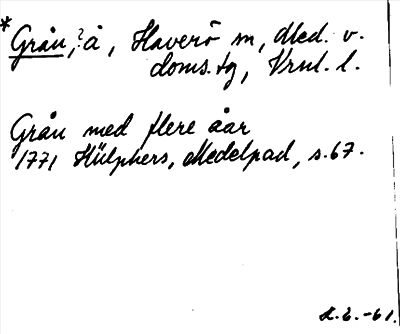 * Grån, ? å, Haverö sn, Med. v.
doms. tg, Vrnl. l.
Grån med flere åar
1771 Hülphers, Medelpad, s. 67.
-61.